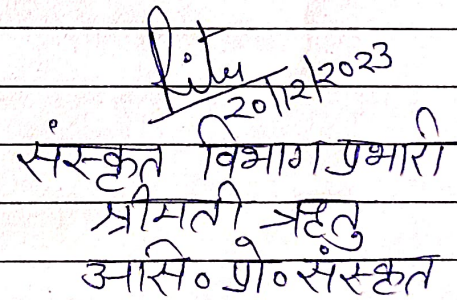 Ritu
20/12/2023
संस्कृत विभाग प्रभारी
श्रीमती ऋतु
आसि० प्रो० संस्कृत